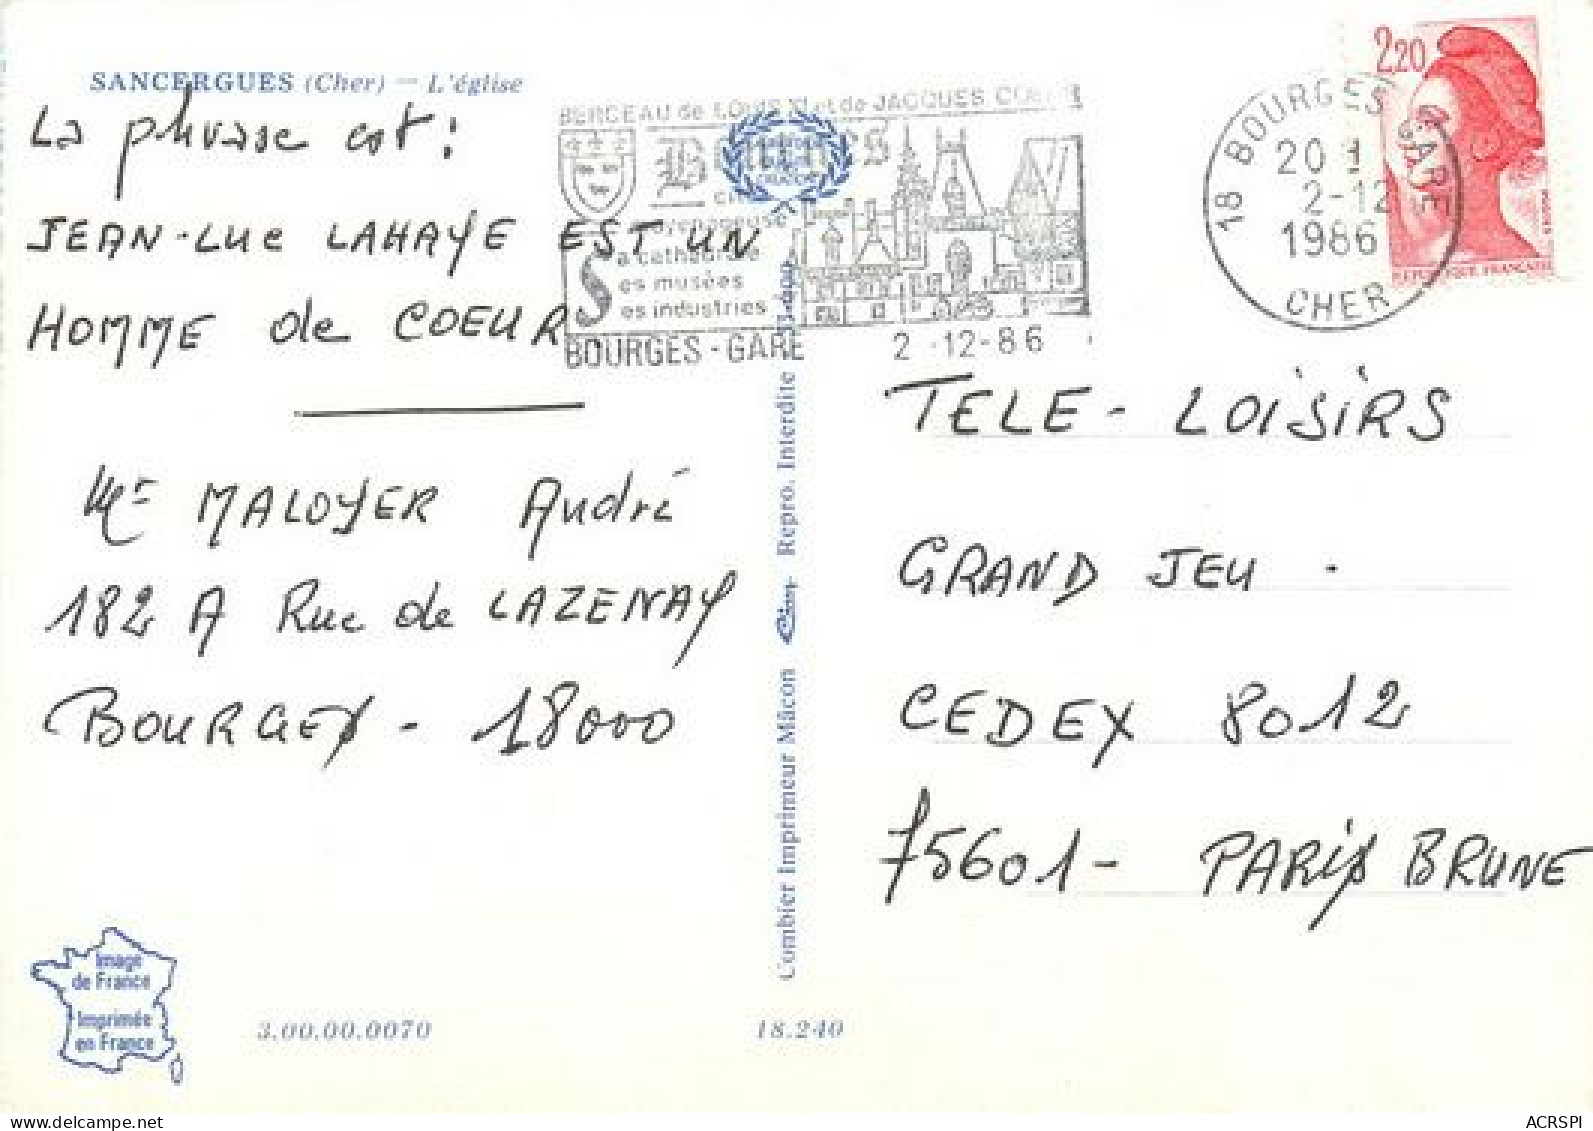 SANCERGUES (Cher) — L'église
La phrase est :
JEAN-LUC LAHAYE EST UN
HOMME de COEUR
Mr MALOYER André
182 A Rue de LAZENAY
BOURGES - 18000
BERCEAU de LOUIS XI et de JACQUES COEUR
Bourges
Sa cathédrale
Ses musées
Ses industries
BOURGES - GARE 2-12-86
18 BOURGES GARE
20 H
2-12
1986
CHER
2,20
REPUBLIQUE FRANÇAISE
TELE - LOISIRS
GRAND JEU .
CEDEX 8012
75601 - PARIS BRUNE
Combier Imprimeur Mâcon Repro. Interdite
Image
de France
Imprimée
en France
3.00.00.0070
18.240
ACRSPI